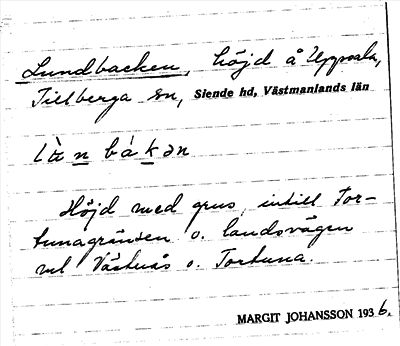 Lundbacken, höjd å Uppsala,
Tillberga sn, Siende hd, Västmanlands län
bákən
Höjd med grus, intill Tor-
tunagränsen o. landsvägen
ml Västerås o. Tortuna.
MARGIT JOHANSSON 1936.